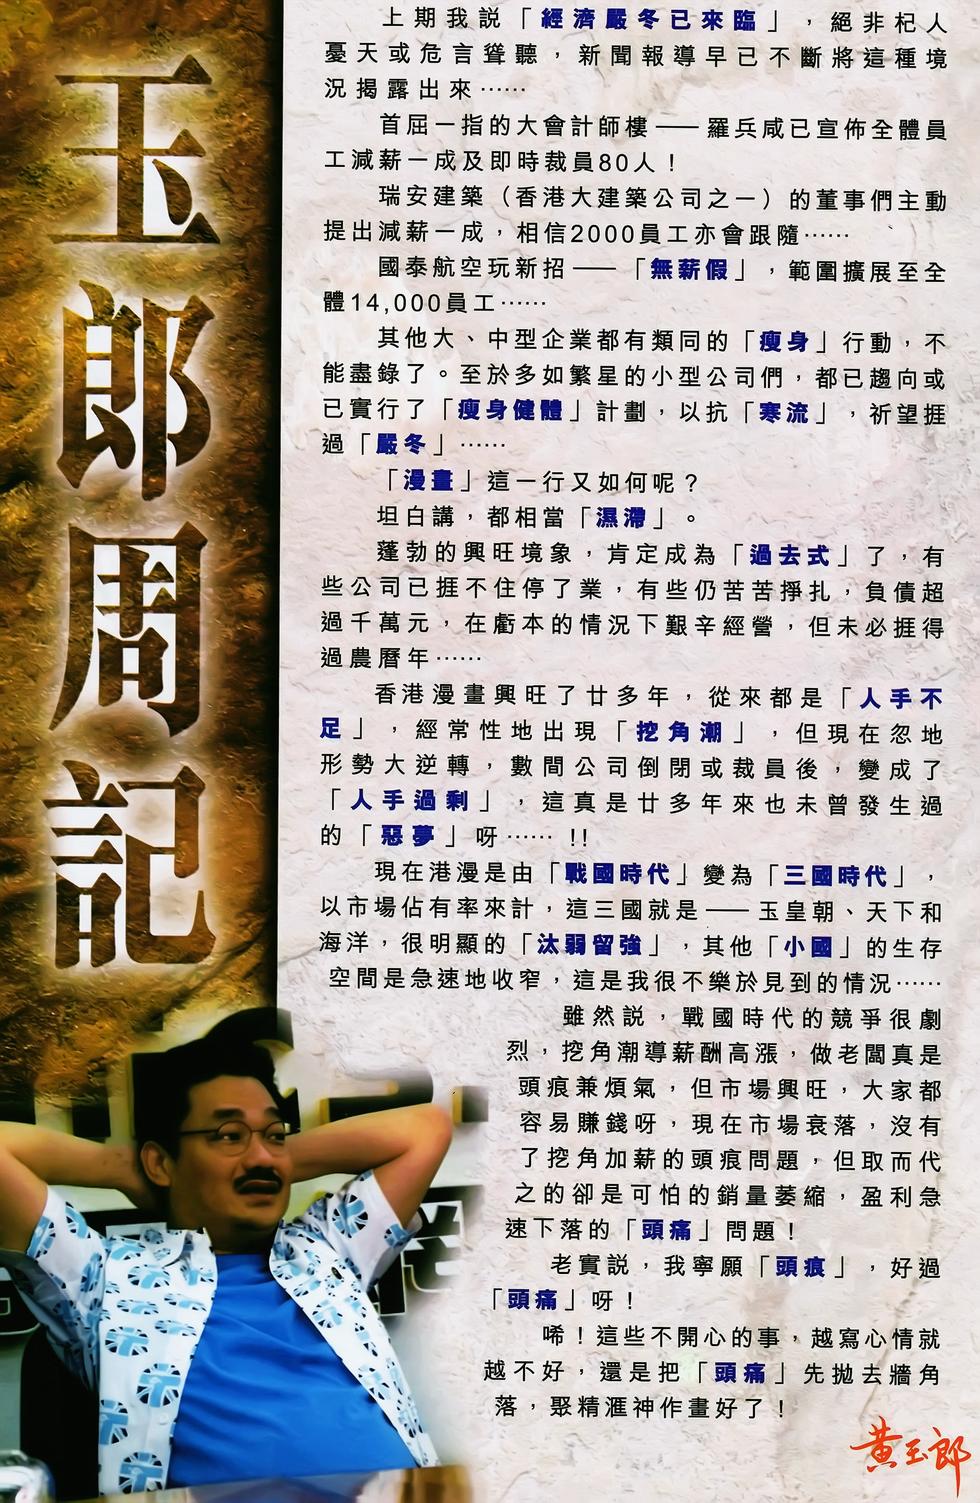 玉郎周記
上期我説「經濟嚴冬已來臨」，絕非杞人
憂天或危言聳聽，新聞報導早已不斷將這種境
況揭露出來⋯⋯
首屈一指的大會計師樓——羅兵咸已宣佈全體員
工減薪一成及即時裁員80人！
瑞安建築（香港大建築公司之一）的董事們主動
提出減薪一成，相信2000員工亦會跟隨⋯⋯
國泰航空玩新招——「無薪假」，範圍擴展至全
體14,000員工⋯⋯
其他大、中型企業都有類同的「瘦身」行動，不
能盡錄了。至於多如繁星的小型公司們，都已趨向或
已實行了「瘦身健體」計劃，以抗「寒流」，祈望捱
過「嚴冬」⋯⋯
「漫畫」這一行又如何呢？
坦白講，都相當「濕滯」。
蓬勃的興旺境象，肯定成為「過去式」了，有
些公司已捱不住停了業，有些仍苦苦掙扎，負債超
過千萬元，在虧本的情況下艱辛經營，但未必捱得
過農曆年⋯⋯
香港漫畫興旺了廿多年，從來都是「人手不
足」，經常性地出現「挖角潮」，但現在忽地
形勢大逆轉，數間公司倒閉或裁員後，變成了
「人手過剩」，這真是廿多年來也未曾發生過
的「惡夢」呀⋯⋯！！
現在港漫是由「戰國時代」變為「三國時代」，
以市場佔有率來計，這三國就是——玉皇朝、天下和
海洋，很明顯的「汰弱留強」，其他「小國」的生存
空間是急速地收窄，這是我很不樂於見到的情況⋯⋯
雖然説，戰國時代的競爭很劇
烈，挖角潮導薪酬高漲，做老闆真是
頭痕兼煩氣，但市場興旺，大家都
容易賺錢呀，現在市場衰落，沒有
了挖角加薪的頭痕問題，但取而代
之的卻是可怕的銷量萎縮，盈利急
速下落的「頭痛」問題！
老實説，我寧願「頭痕」，好過
「頭痛」呀！
唏！這些不開心的事，越寫心情就
越不好，還是把「頭痛」先拋去牆角
落，聚精滙神作畫好了！
黃玉郎